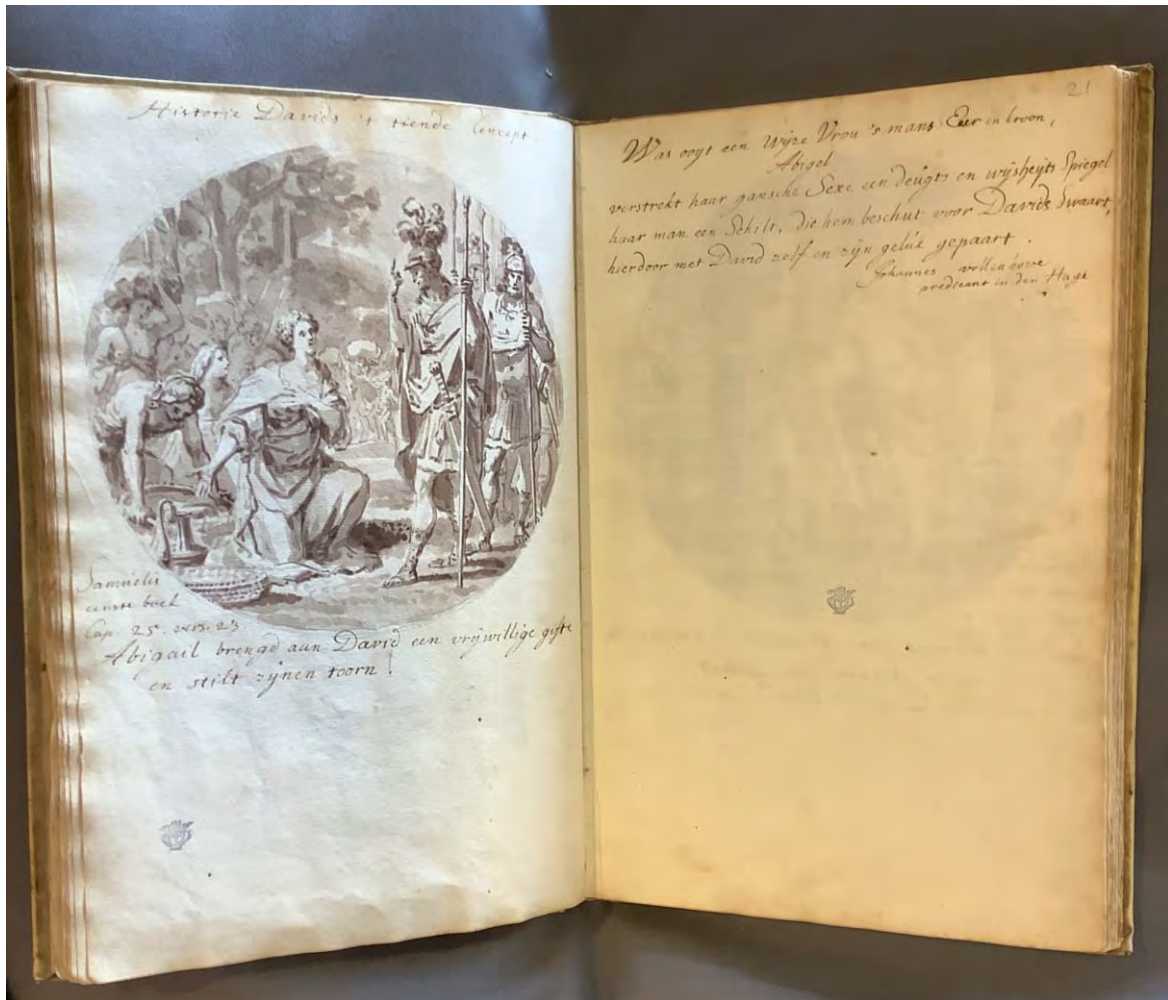 Historie Davids 't tiende Concept.
Samuelis
eerste boek
Cap. 25. vers. 23
Abigail brengd aan David een vrijwillige gifte
en stilt zijnen toorn!
21
Was ooyt een Wijze Vrou 's mans Eer en kroon,
Abigel
verstrekt haar gansche Sexe een deugts en wijsheyts Spiegel
haar man een Schilt, die hem beschut voor Davids Swaart,
hierdoor met David zelf en zijn geluk gepaart.
Johannes vollenhove
predicant in den Hage